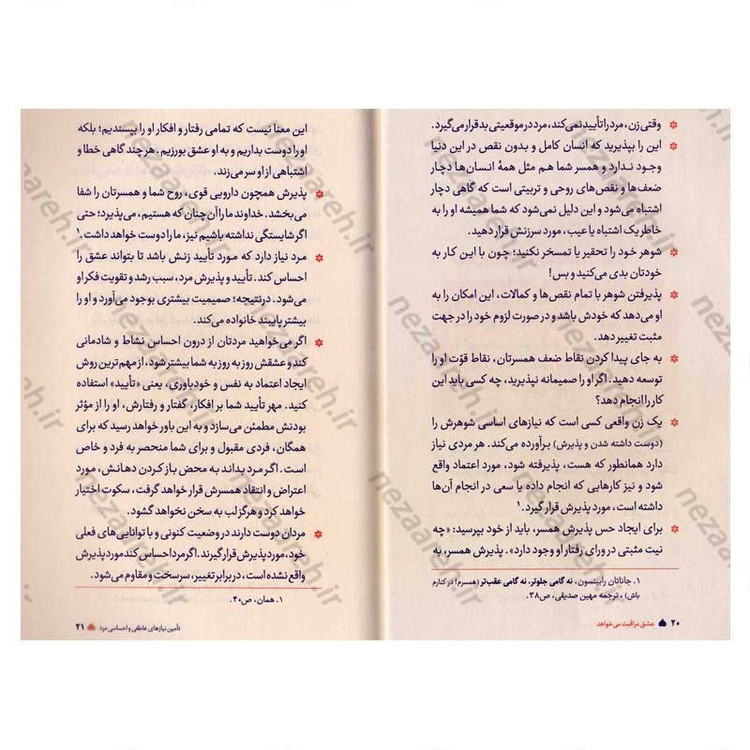 * وقتی زن، مرد را تأیید نمی‌کند، مرد در موقعیتی بد قرار می‌گیرد.
* این را بپذیرید که انسان کامل و بدون نقص در این دنیا
وجود ندارد و همسر شما هم مثل همهٔ انسان‌ها دچار
ضعف‌ها و نقص‌های روحی و تربیتی است که گاهی دچار
اشتباه می‌شود و این دلیل نمی‌شود که شما همیشه او را به
خاطر یک اشتباه یا عیب، مورد سرزنش قرار دهید.
* شوهر خود را تحقیر یا تمسخر نکنید؛ چون با این کار به
خودتان بدی می‌کنید و بس!
* پذیرفتن شوهر با تمام نقص‌ها و کمالات، این امکان را به
او می‌دهد که خودش باشد و در صورت لزوم خود را در جهت
مثبت تغییر دهد.
* به جای پیدا کردن نقاط ضعف همسرتان، نقاط قوّت او را
توسعه دهید. اگر او را صمیمانه نپذیرید، چه کسی باید این
کار را انجام دهد؟
* یک زن واقعی کسی است که نیازهای اساسی شوهرش را
(دوست داشته شدن و پذیرش) برآورده می‌کند. هر مردی نیاز
دارد همانطور که هست، پذیرفته شود، مورد اعتماد واقع
شود و نیز کارهایی که انجام داده یا سعی در انجام آن‌ها
داشته است، مورد پذیرش قرار گیرد.۱
* برای ایجاد حس پذیرش همسر، باید از خود بپرسید: «چه
نیت مثبتی در ورای رفتار او وجود دارد». پذیرش همسر، به
۱. جاناتان رابینسون، نه گامی جلوتر، نه گامی عقب‌تر (همسرم! در کنارم
باش)، ترجمه مهین صدیقی، ص۳۸.
۲۰ عشق مراقبت می‌خواهد
این معنا نیست که تمامی رفتار و افکار او را بپسندیم؛ بلکه
او را دوست بداریم و به او عشق بورزیم. هر چند گاهی خطا و
اشتباهی از او سر می‌زند.
* پذیرش همچون دارویی قوی، روح شما و همسرتان را شفا
می‌بخشد. خداوند ما را آن‌چنان که هستیم، می‌پذیرد؛ حتی
اگر شایستگی نداشته باشیم نیز، ما را دوست خواهد داشت.۱
* مرد نیاز دارد که مورد تأیید زنش باشد تا بتواند عشق را
احساس کند. تأیید و پذیرش مرد، سبب رشد و تقویت فکر او
می‌شود. درنتیجه؛ صمیمیت بیشتری بوجود می‌آورد و او را
بیشتر پایبند خانواده می‌کند.
* اگر می‌خواهید مردتان از درون احساس نشاط و شادمانی
کند و عشقش روز به روز به شما بیشتر شود، از مهم‌ترین روش
ایجاد اعتماد به نفس و خودباوری، یعنی «تأیید» استفاده
کنید. مهر تأیید شما بر افکار، گفتار و رفتارش، او را از مؤثر
بودنش مطمئن می‌سازد و به این باور خواهد رسید که برای
همگان، فردی مقبول و برای شما منحصر به فرد و خاص
است. اگر مرد بداند به محض باز کردن دهانش، مورد
اعتراض و انتقاد همسرش قرار خواهد گرفت، سکوت اختیار
خواهد کرد و هرگز لب به سخن نخواهد گشود.
* مردان دوست دارند در وضعیت کنونی و با توانایی‌های فعلی
خود، مورد پذیرش قرار گیرند. اگر مرد احساس کند مورد پذیرش
واقع نشده است، در برابر تغییر، سرسخت و مقاوم می‌شود.
۱. همان، ص۴۰.
تأمین نیازهای عاطفی و احساسی مرد ۲۱
nezaareh.ir